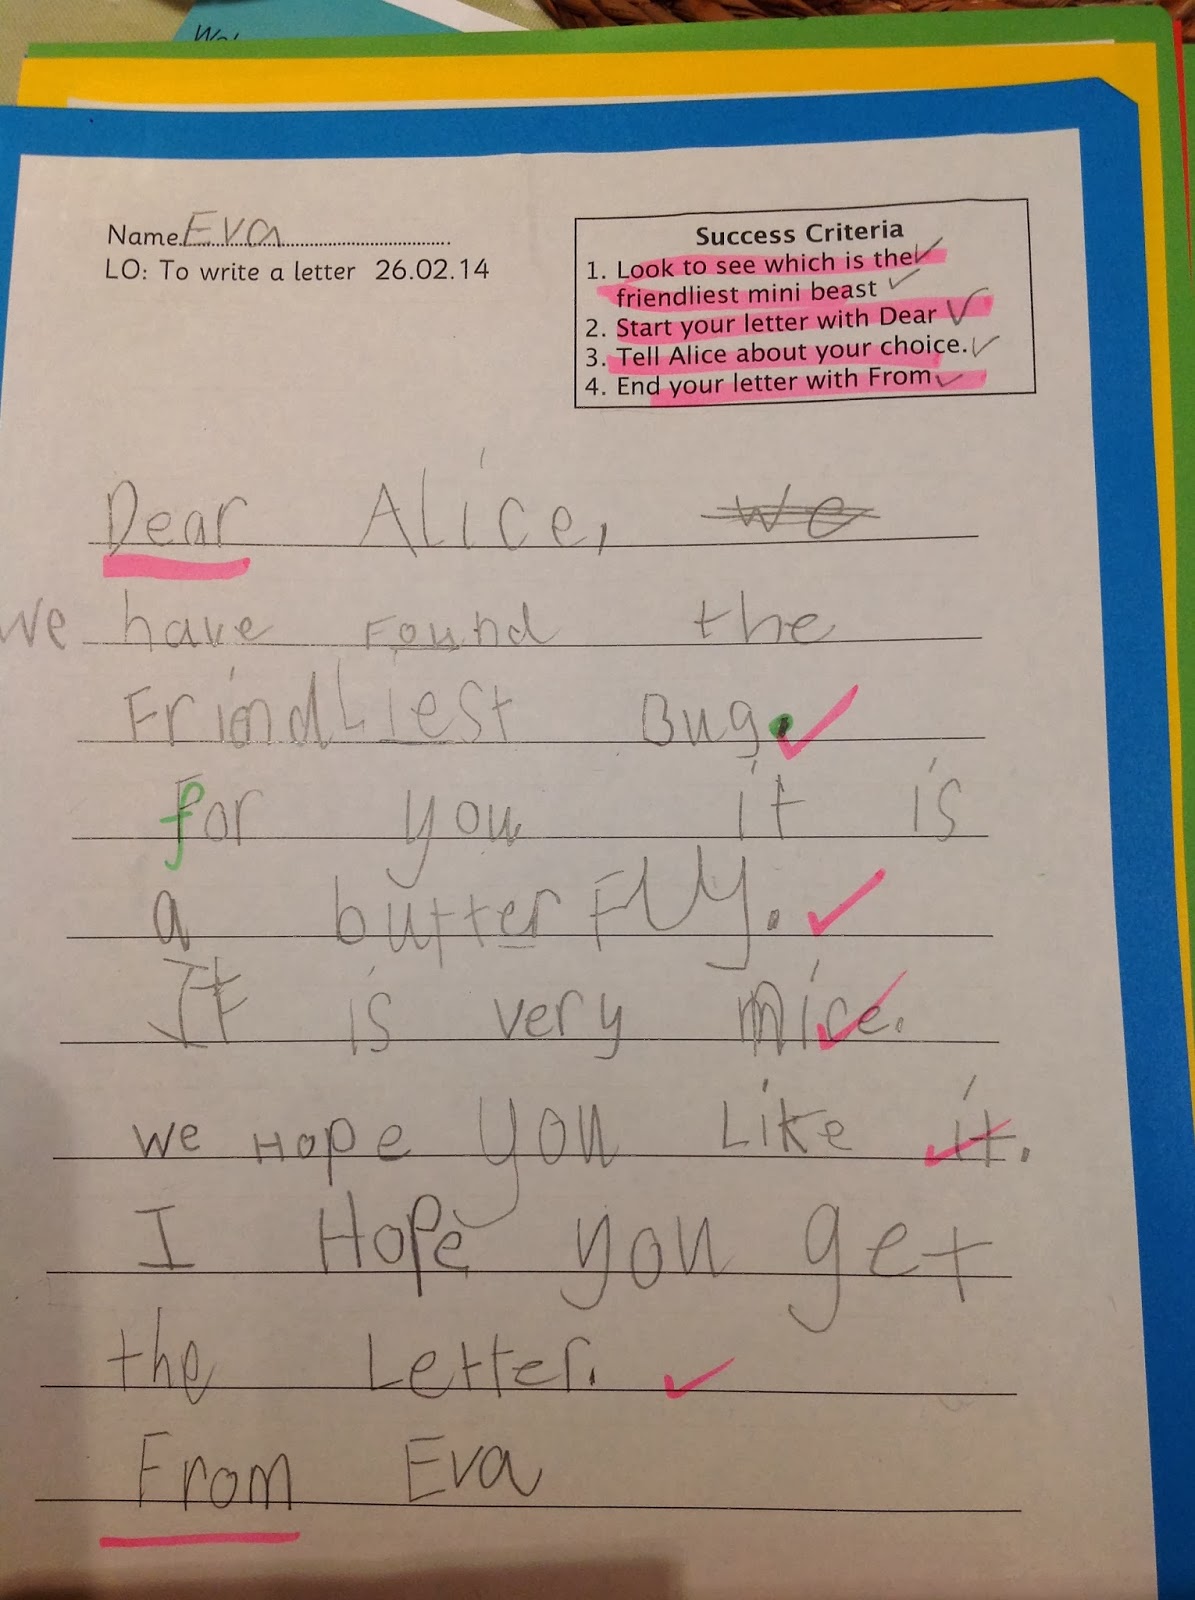 Name Eva
LO: To write a letter 26.02.14
Success Criteria
1. Look to see which is the
friendliest mini beast
2. Start your letter with Dear
3. Tell Alice about your choice.
4. End your letter with From
Dear Alice, we
we have Found the
FrindLiest Bug.
for you it is
a butterFly.
It is very nice.
we Hope you Like it.
I Hope you get
the Letter.
From Eva